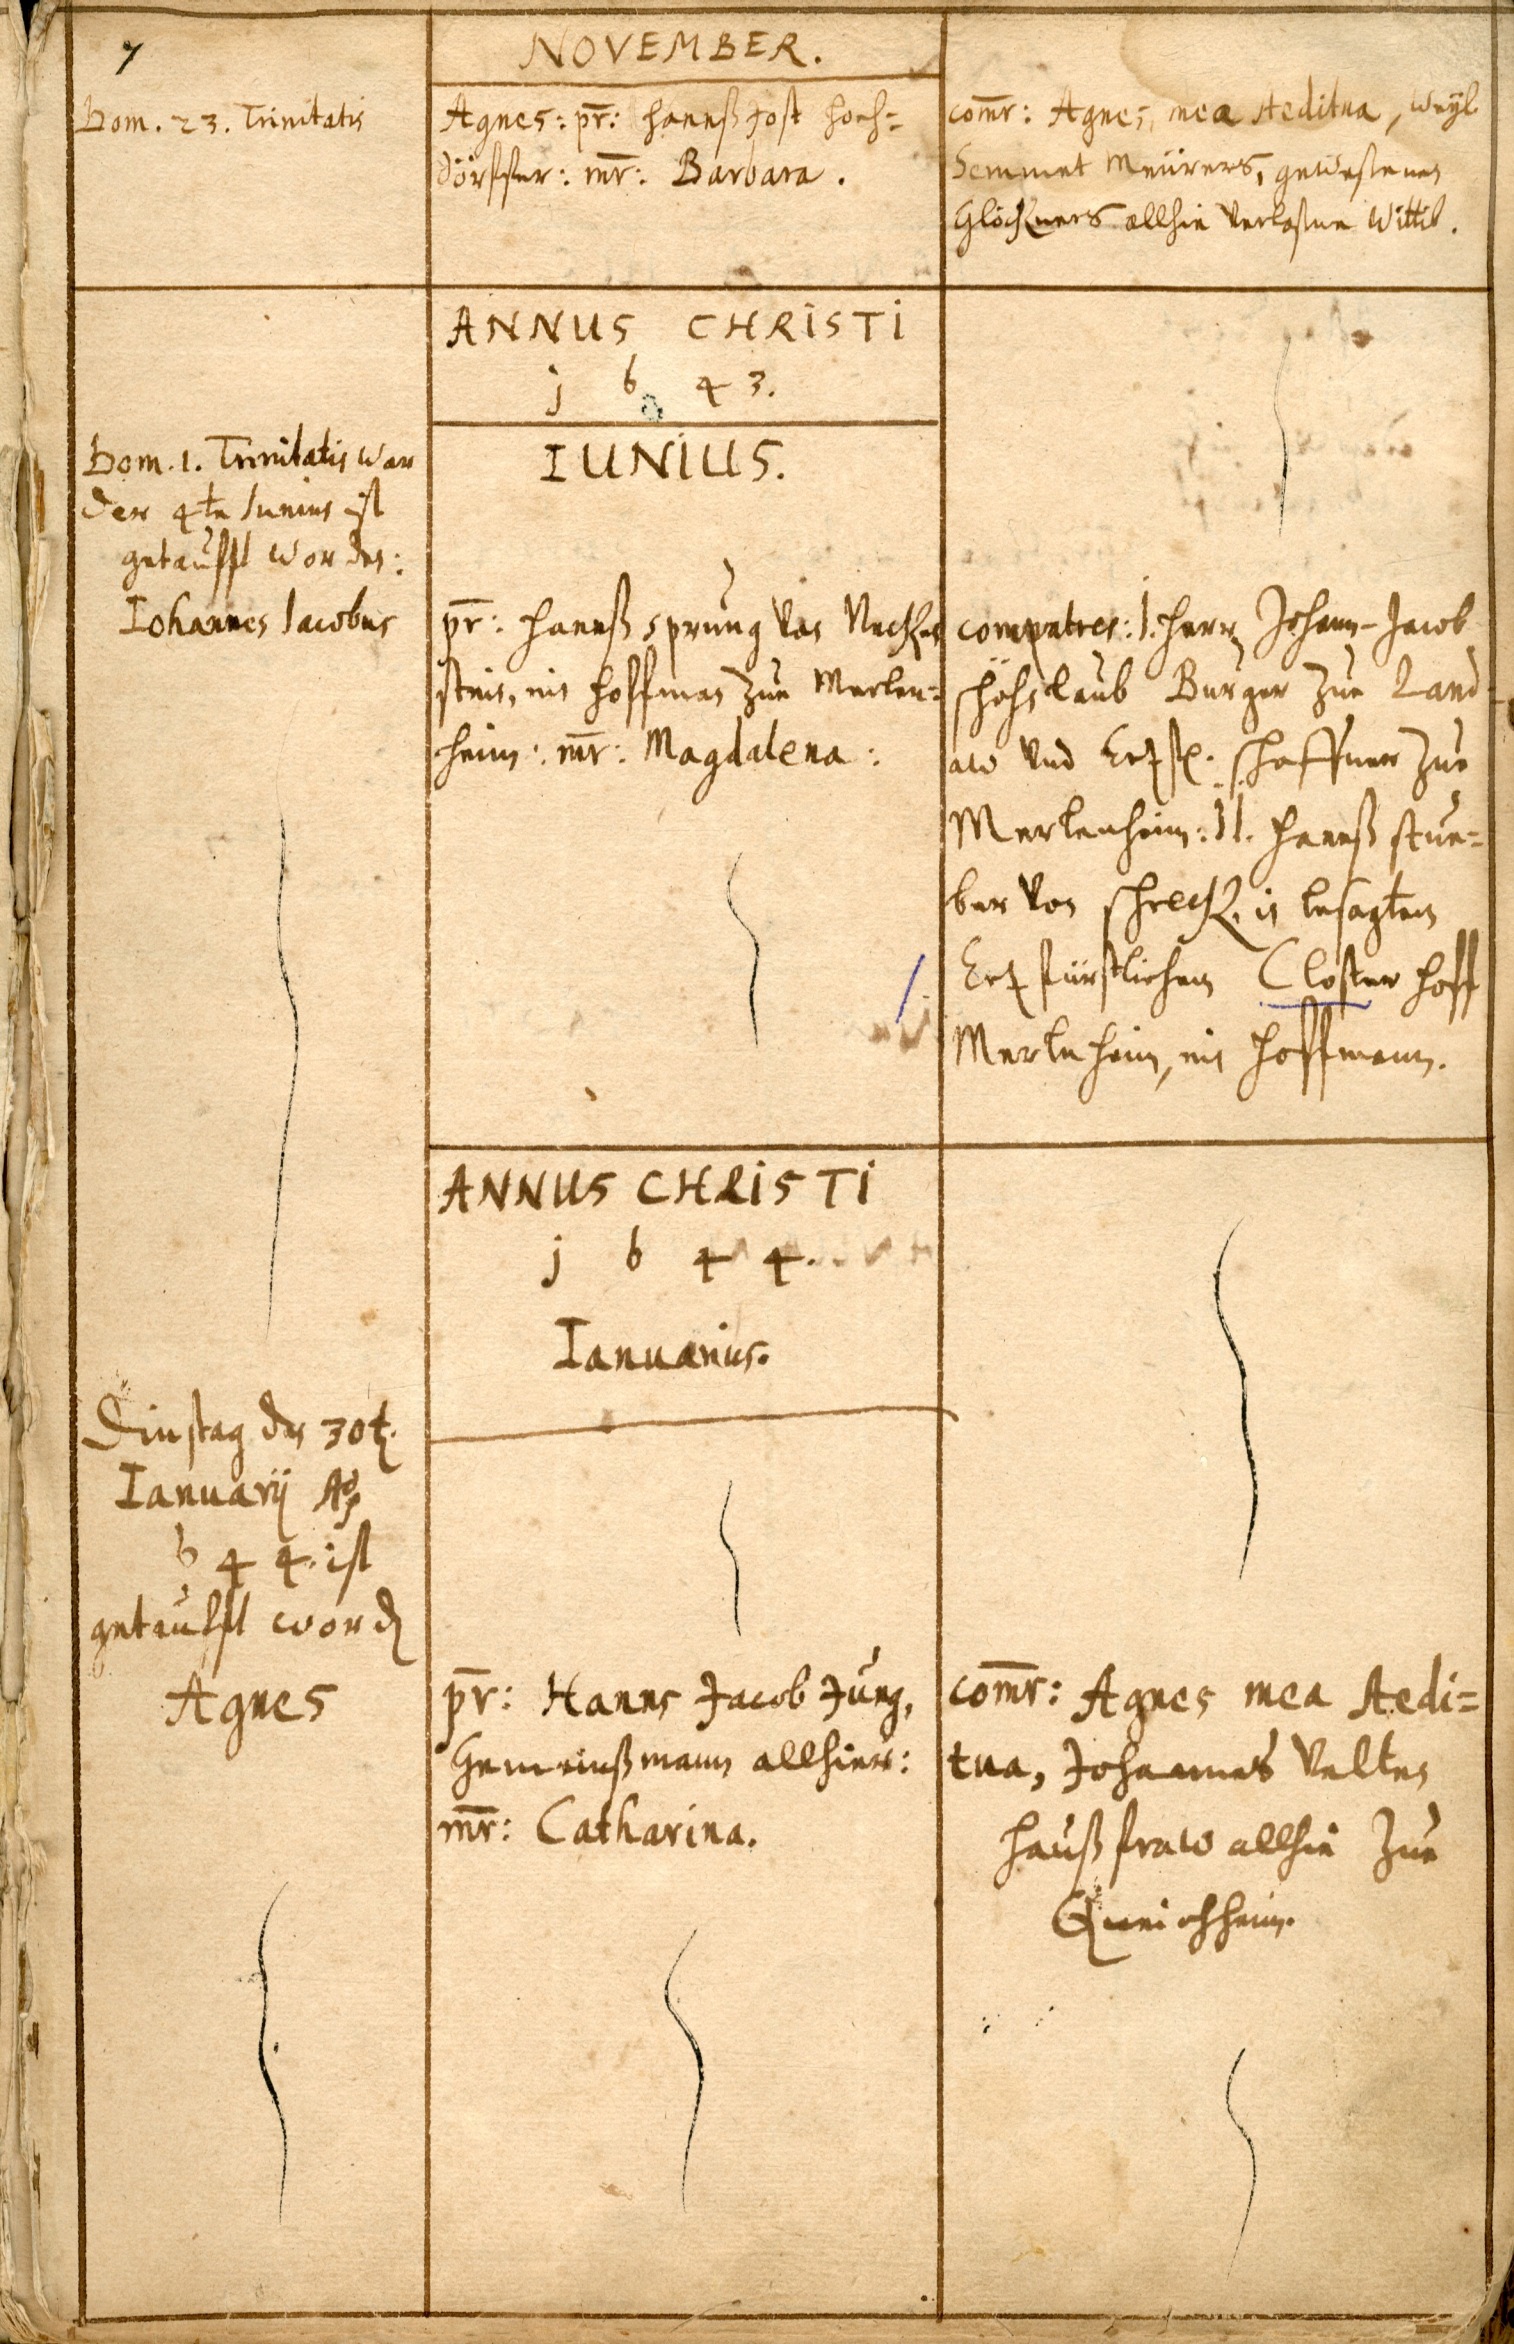 7
NOVEMBER.
Dom. 23. Trinitatis
Agnes: pr̄: Hannß Jost Hoch=
dörffer: mr̄: Barbara.
com̄r: Agnes, mea Aeditua, weyl.
Hemmet Meürers, gewesenen
Glöckners allhie verlaßne Wittib.
ANNUS CHRISTI
j 6 4 3.
IUNIUS.
Dom. 1. Trinitatis war
der 4te Iunius ist
getaufft worden:
Iohannes Iacobus
pr̄: Hannß Sprung von
stein, ein Hoffman zue Merlen=
heim: mr̄: Magdalena:
compatres: I. Herr Johann-Jacob
Burger zue Land
aw und Ertzfl. Schaffner zue
Merlenheim: II. Hannß Stue=
ber von Schreck, in besagtem
Ertzfürstlichen Closter Hoff
Merlnheim, ein Hoffmann.
ANNUS CHRISTI
j 6 4 4.
Ianuarius.
Dinstag den 30t.
Ianuarij Ao
6 4 4. ist
getaufft word
Agnes
pr̄: Hanns Jacob Jung,
Gemeinßmann allhier:
mr̄: Catharina.
com̄r: Agnes mea Aedi=
tua, Johannes Velten
Haußfraw allhie zue
Queichheim.